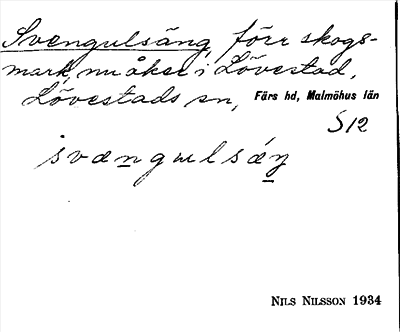 Svengulsäng, förr skogs-
mark, nu åker i Lövestad,
Lövestads sn, Färs hd, Malmöhus län
S12
NILS NILSSON 1934